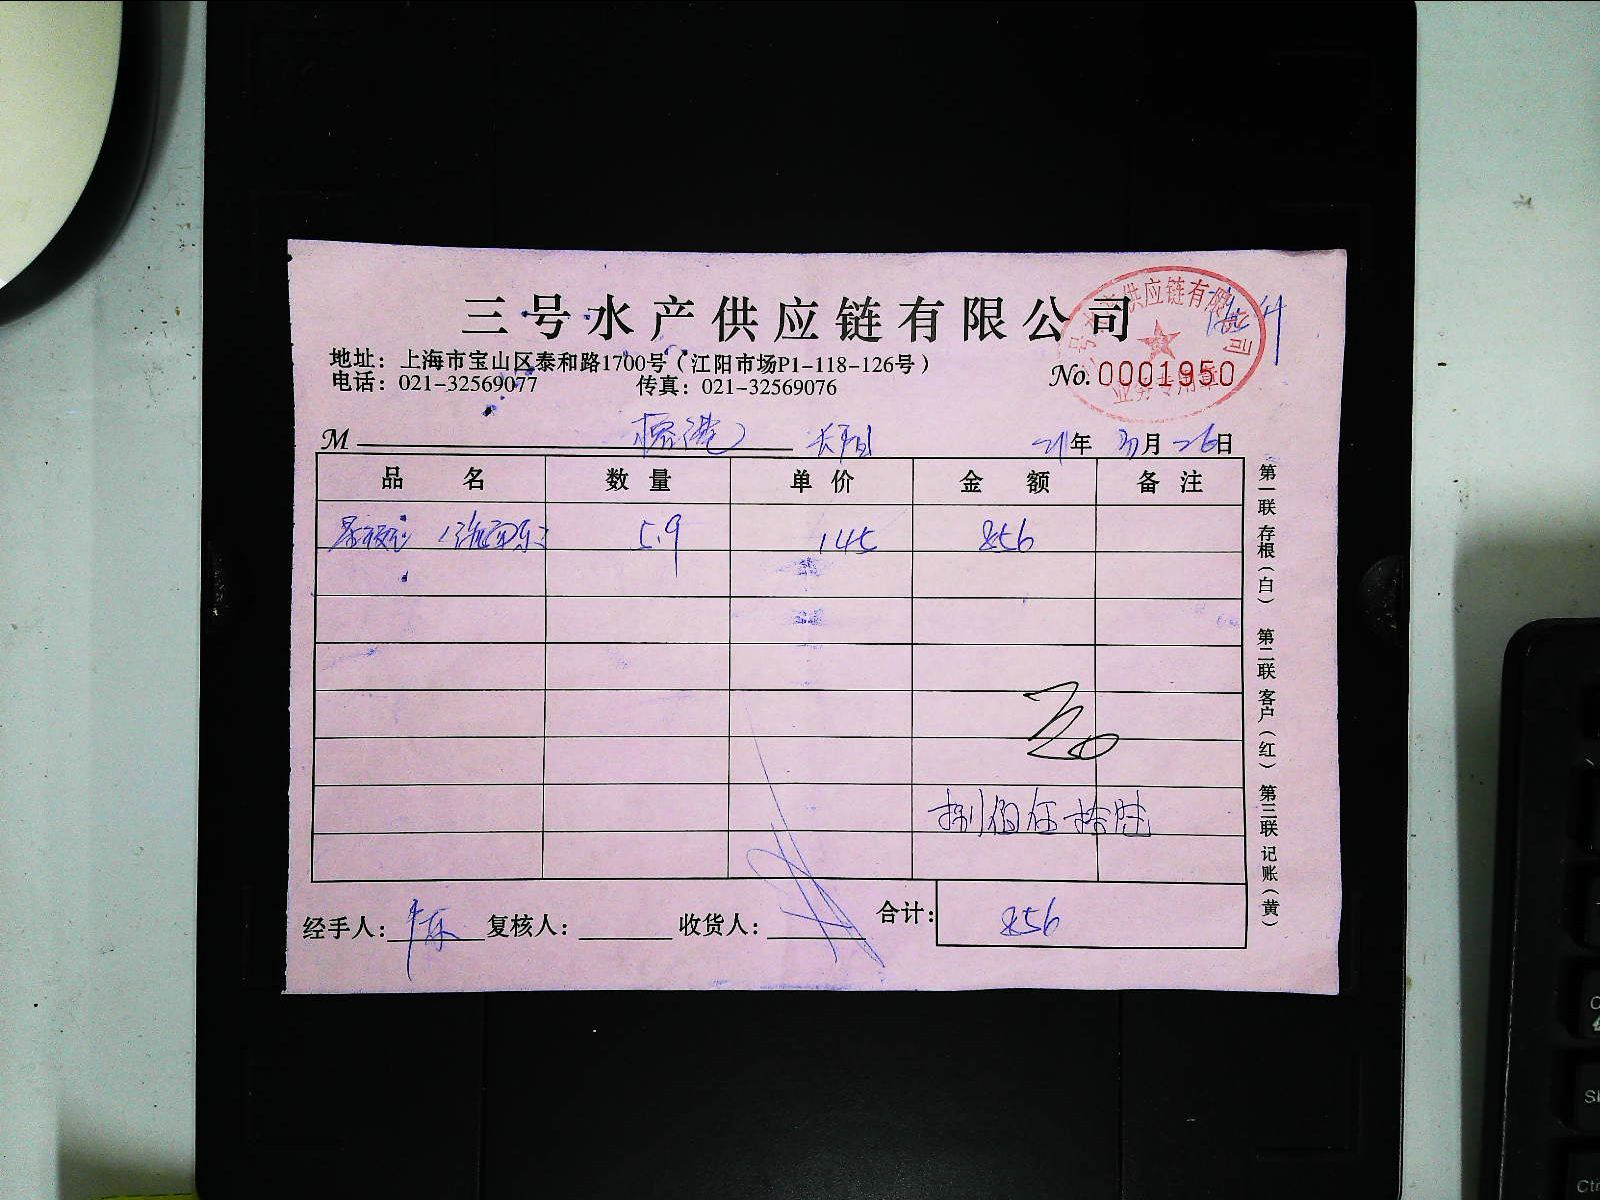 三号水产供应链有限公司
地址：上海市宝山区泰和路1700号（江阳市场P1-118-126号）
电话：021-32569077 传真：021-32569076
No. 0001950
供应链有限
公司
M 榕港 21年 月 26日
品名 数量 单价 金额 备注
5.9 145 856
捌佰伍拾陆
经手人： 复核人： 收货人： 合计：856
第一联 存根（白） 第二联 客户（红） 第三联 记账（黄）